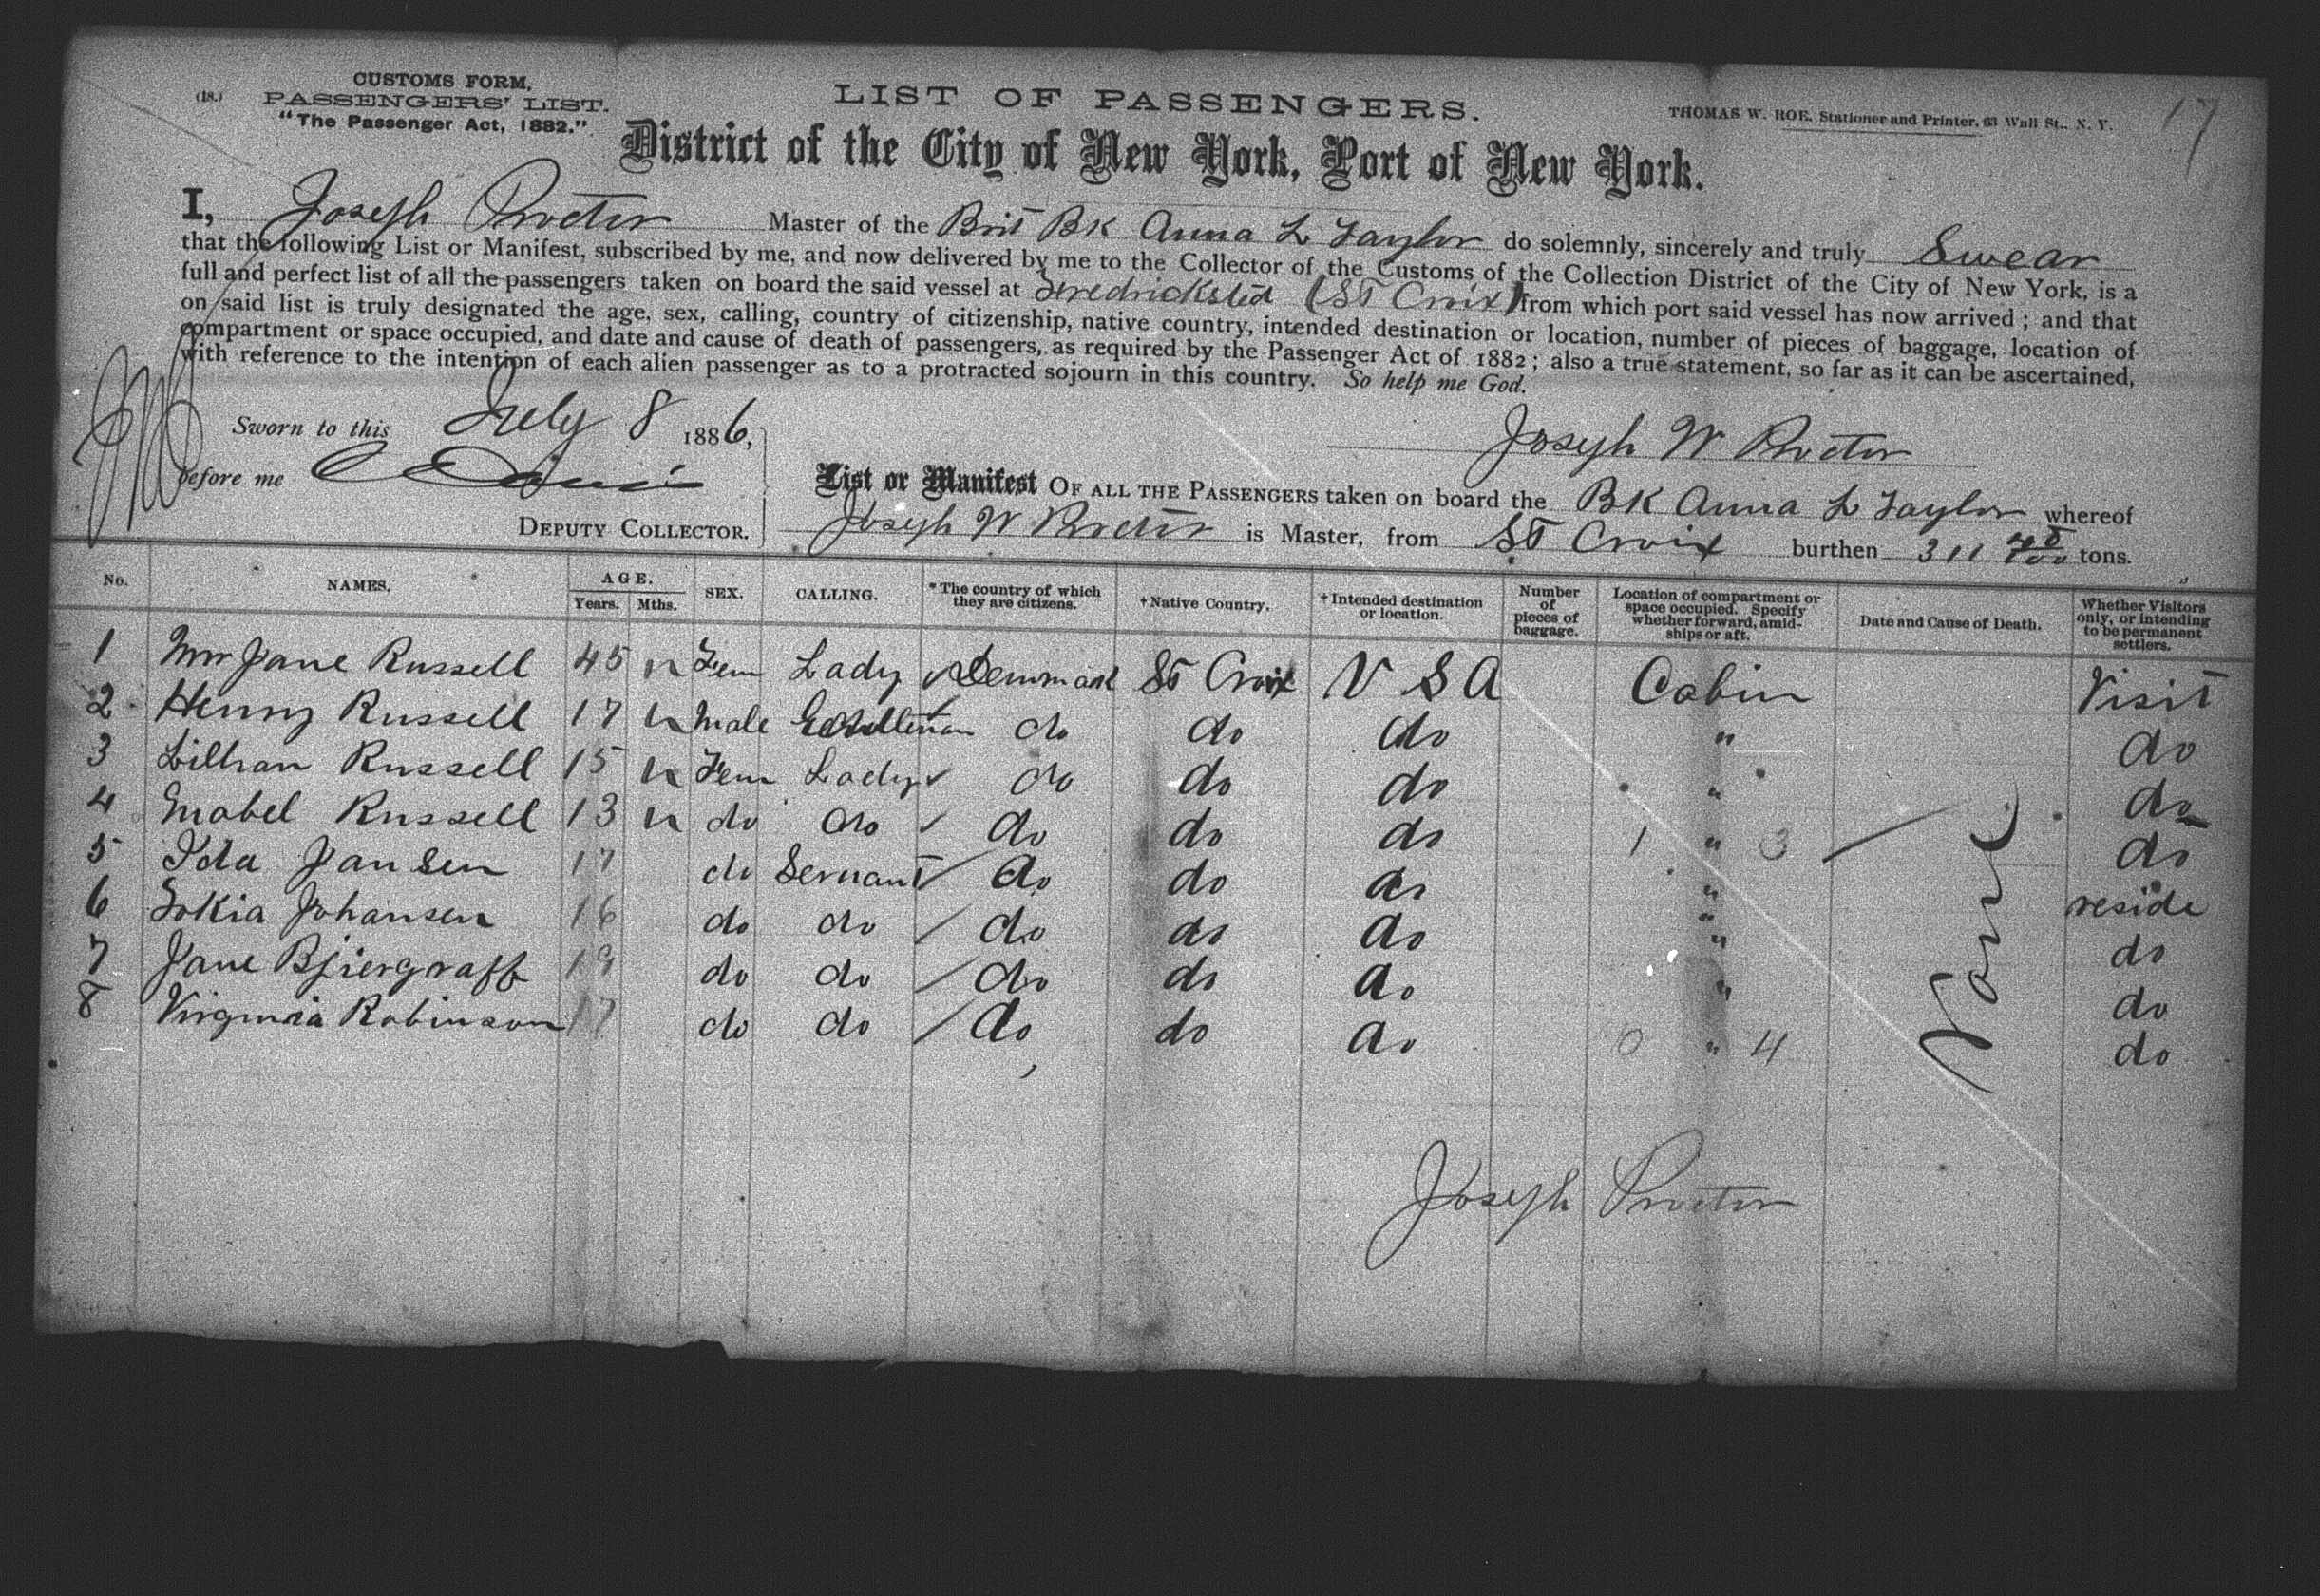 CUSTOMS FORM,
(18.) PASSENGERS' LIST.
"The Passenger Act, 1882."
LIST OF PASSENGERS.
THOMAS W. ROE, Stationer and Printer, 63 Wall St., N. Y.
17
District of the City of New York, Port of New York.
I, Joseph Proctor Master of the Brit Bk Anna L Taylor do solemnly, sincerely and truly Swear
that the following List or Manifest, subscribed by me, and now delivered by me to the Collector of the Customs of the Collection District of the City of New York, is a
full and perfect list of all the passengers taken on board the said vessel at Fredricksted (St Croix) from which port said vessel has now arrived; and that
on said list is truly designated the age, sex, calling, country of citizenship, native country, intended destination or location, number of pieces of baggage, location of
compartment or space occupied, and date and cause of death of passengers, as required by the Passenger Act of 1882; also a true statement, so far as it can be ascertained,
with reference to the intention of each alien passenger as to a protracted sojourn in this country. So help me God.
Sworn to this July 8 1886,
Joseph W Proctor
before me
List or Manifest OF ALL THE PASSENGERS taken on board the BK Anna L Taylor whereof
DEPUTY COLLECTOR. Joseph W Proctor is Master, from St Croix burthen 311 tons.
No. NAMES. AGE. Years. Mths. SEX. CALLING. *The country of which they are citizens. †Native Country. †Intended destination or location. Number of pieces of baggage. Location of compartment or space occupied. Specify whether forward, amidships or aft. Date and Cause of Death. Whether Visitors only, or intending to be permanent settlers.
1 Mrs Jane Russell 45 Fem Lady Denmark St Croix U S A Cabin Visit
2 Henry Russell 17 Male Gentleman do do do " do
3 Lillian Russell 15 Fem Lady do do do " do
4 Mabel Russell 13 do do do do do 1 " 3 do
5 Ida Jansen 17 do Servant do do do " reside
6 Sokia Johansen 16 do do do do do " do
7 Jane Bjiergraff 19 do do do do do " do
8 Virginia Robinson 17 do do do do do 0 " 4 do
None
Joseph Proctor